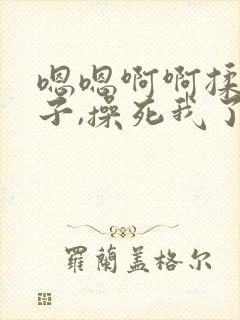 嗯嗯啊啊揉
子,操死我了
羅蘭蓋格尔